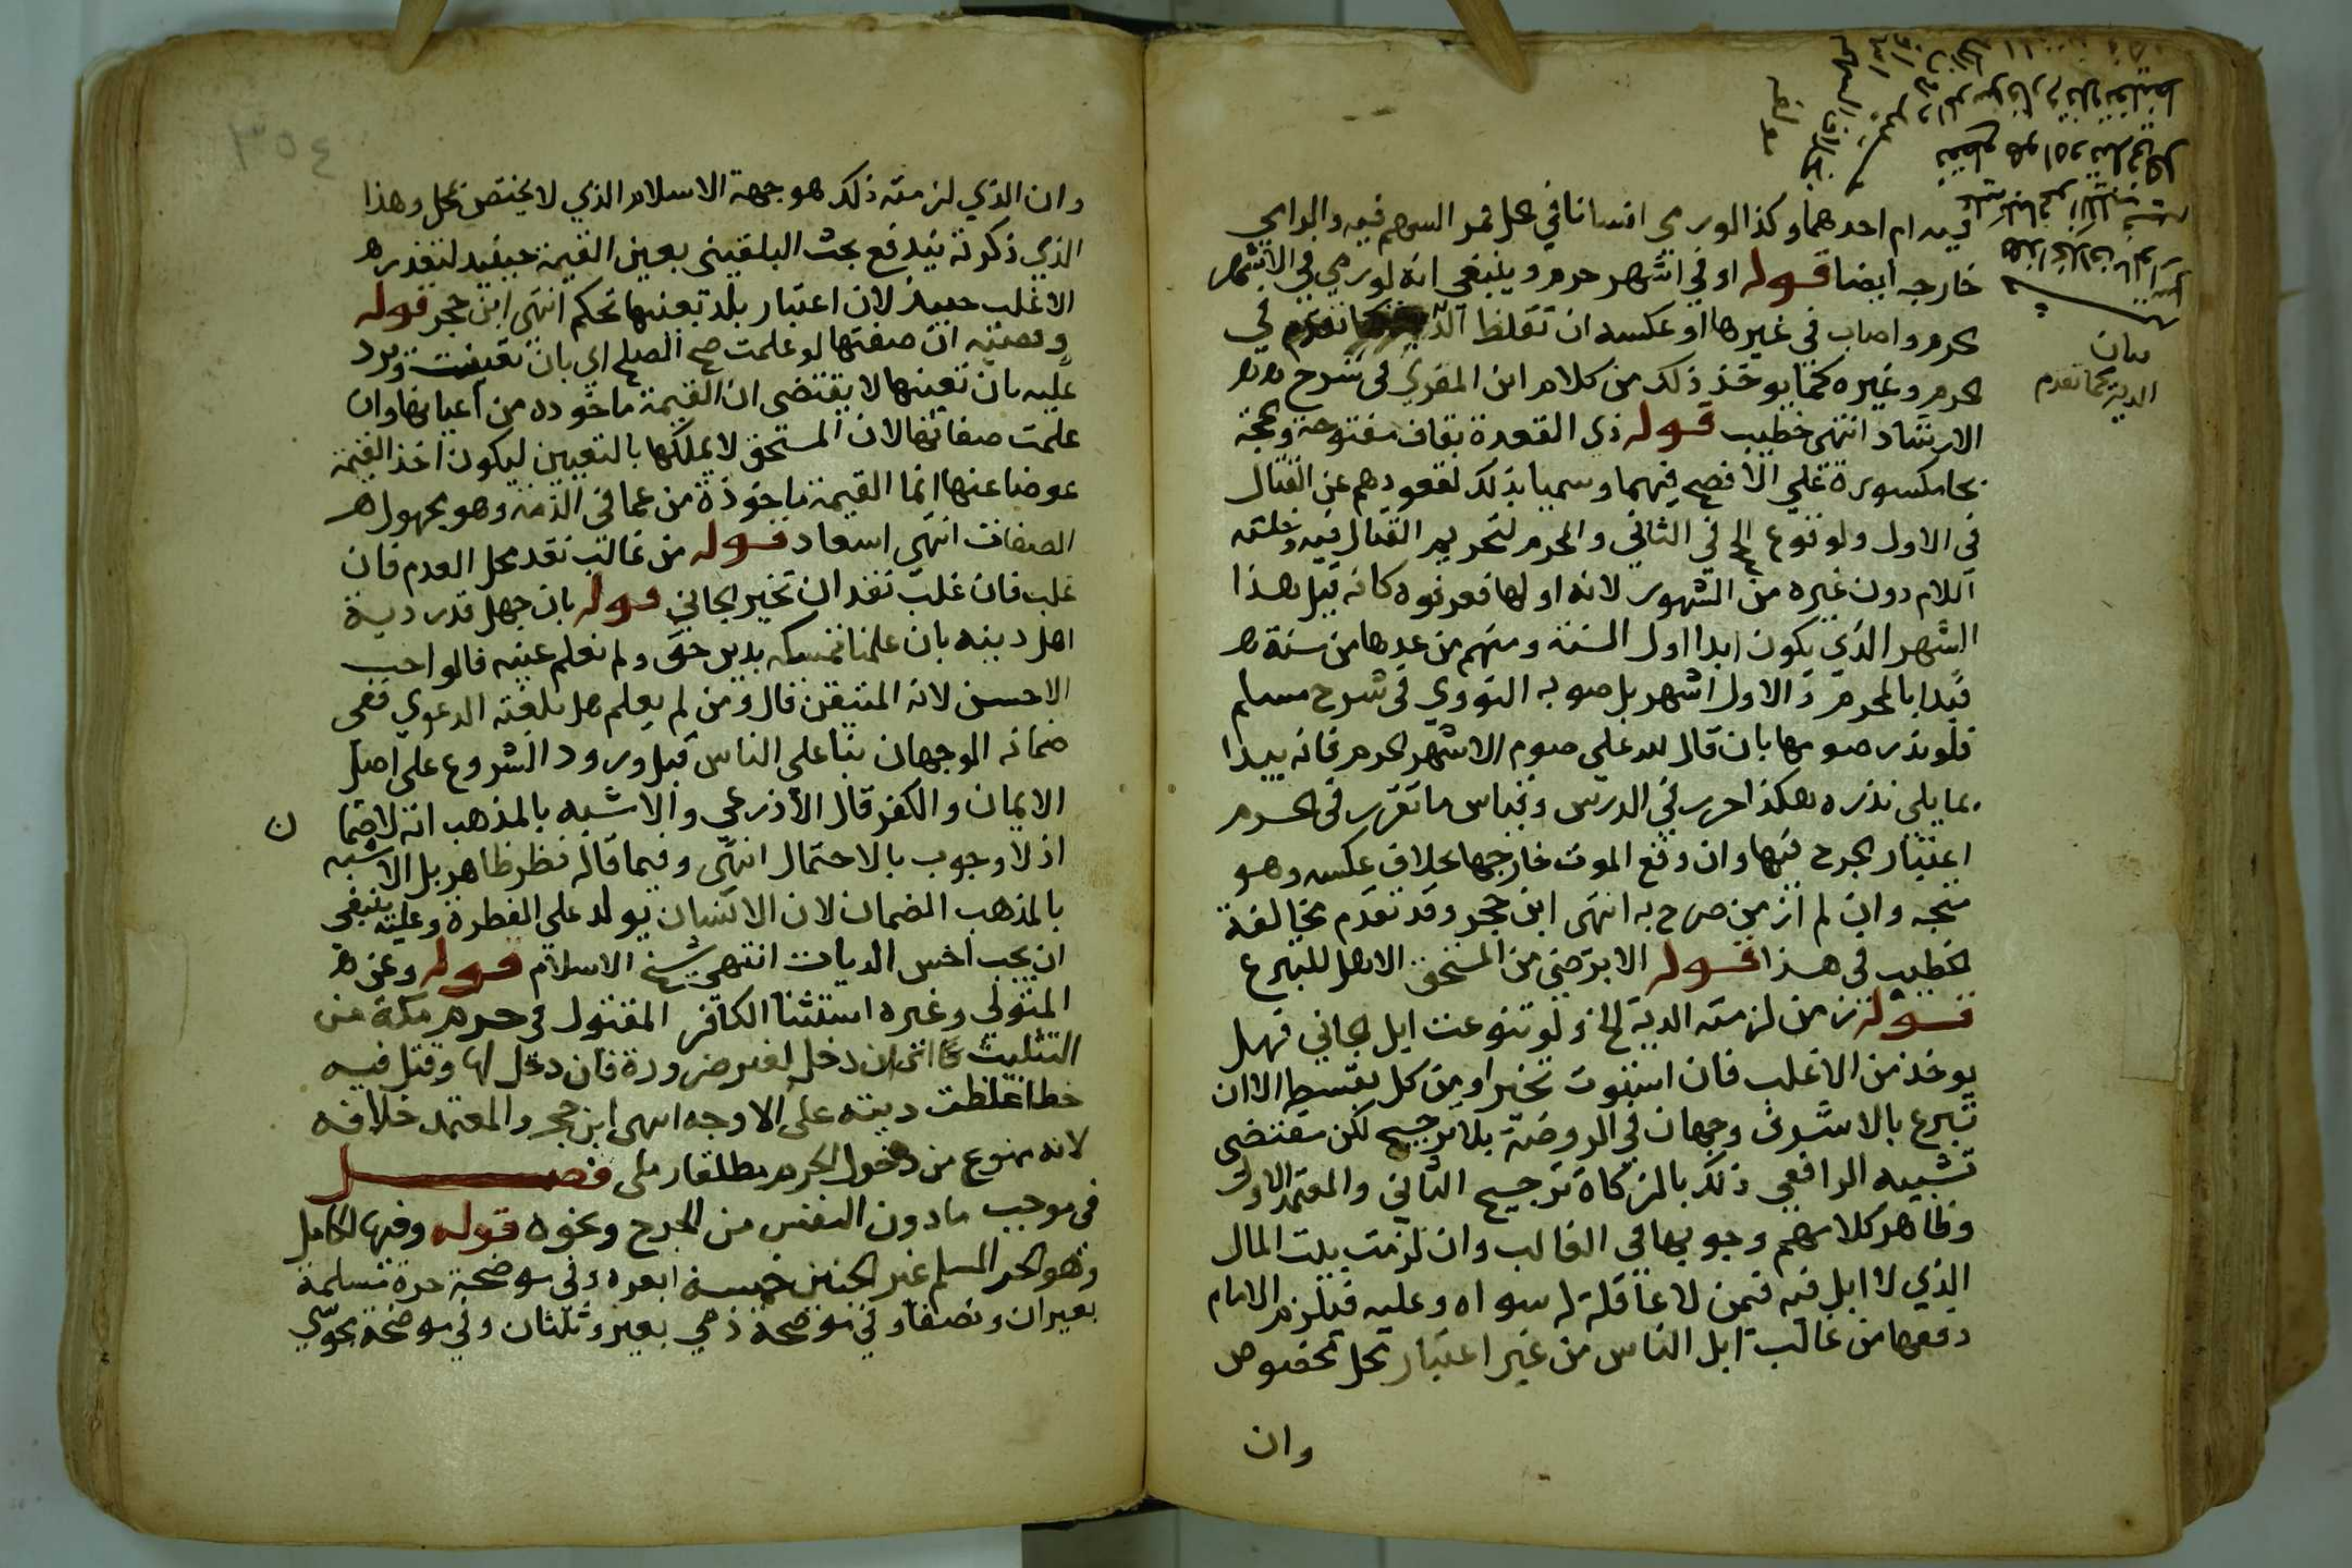 فيه ام احدهما وكذا لو رمى انسانا في حل فمر السهم فيه
خارجه ايضا قوله او في اشهر حرم وينبغي انه لو رمى في الاشهر
الحرم واصاب في غيرها او عكسه ان تغلظ كما تقدم في
الحرم وغيره كما يوخذ ذلك من كلام ابن المقري في شرح
الارشاد انتهى خطيب قوله ذي القعدة بقاف مفتوحة وحجة
بحا مكسورة على الافصح فيهما وسميا بذلك لقعودهم عن القتال
في الاول ولوقوع الحج في الثاني والمحرم لتحريم القتال فيه ودخلته
اللام دون غيره من الشهور لانه اولها فعرفوه كانه قيل هذا
الشهر الذي يكون ابدا اول السنة ومنهم من عدها من سنة
فبدا بالمحرم والاول اشهر بل صوبه النووي في شرح مسلم
فلو نذر صومها بان قال لله علي صوم الاشهر الحرم فانه يبدا
بما يلي نذره هكذا حرر في الدرس وقياس ما تقرر في الحرم
اعتبار الجرح فيها وان وقع الموت خارجها بخلاف عكسه وهو
متجه وان لم ار من صرح به انتهى ابن حجر وقد تقدم مخالفة
الخطيب في هذا قوله الا برضى من المستحق الاهل للتبرع
قوله ومن لزمته الدية الخ ولو تنوعت ابل الجاني فهل
يوخذ من الاغلب فان استوت تخير او من كل بقسطه الا ان
تبرع بالاشرف وجهان في الروضة بلا ترجيح لكن مقتضى
تشبيه الرافعي ذلك بالزكاة ترجيح الثاني والمعتمد الاول
وظاهر كلامهم وجوبها في الغالب وان لزمت بيت المال
الذي لا ابل فيه فيمن لا عاقلة له سواه وعليه فيلزم الامام
دفعها من غالب ابل الناس من غير اعتبار محل مخصوص
وان
بيان
الدية كما تقدم
٣٥٤
وان الذي لزمته ذلك هو جهة الاسلام الذي لا يختص بمحل وهذا
الذي ذكرته يندفع بحث البلقيني بعين القيمة حينئذ لتعذر
الاغلب حينئذ لان اعتبار بلد بعينها تحكم انتهى ابن حجر قوله
وقضيته ان صفتها لو علمت صح الصلح اي بان تعينت ويرد
عليه بان تعينها لا يقتضي ان القيمة ماخوذه من اعيانها وان
علمت صفاتها لان المستحق لا يملكها بالتعيين ليكون اخذ القيمة
عوضا عنها انما القيمة ماخوذة من عما في الذمة وهو مجهول
الصفات انتهى اسعاد قوله من غالب نقد محل العدم فان
غلب فان غلب نقدان تخير الجاني قوله بان جهل قدر دية
اهل دينه بان علمنا تمسكه بدين حق ولم نعلم عينه قالوا احب
الاحسن لانه المتيقن قال ومن لم يعلم هل بلغته الدعوى ففي
ضمانه الوجهان بنا على الناس قبل ورود الشروع على اصل
الايمان والكفر قال الاذرعي والاشبه بالمذهب انه لا ضما ن
اذ لا وجوب بالاحتمال انتهى وفيما قاله نظر ظاهر بل الاشبه
بالمذهب الضمان لان الانسان يولد على الفطرة وعليه ينبغي
ان يجب اخس الديات انتهى شيخ الاسلام قوله وعن
المتولي وغيره استثنا الكافر المقتول في حرم مكة من
التثليث دخل لغير ضرورة فان دخل لها وقتل فيه
خطا غلظت ديته على الاوجه انتهى ابن حجر والمعتمد خلافه
لانه ممنوع من دخول الحرم مطلقا رملى فصل
في موجب ما دون النفس من الجرح ونحوه قوله وفيها لكامل
وهو الحر المسلم غير الجنين خمسة ابعرة وفي موضحة حرة مسلمة
بعيران ونصف وفي موضحة ذمي بعير وثلثان وفي موضحة مجوسي